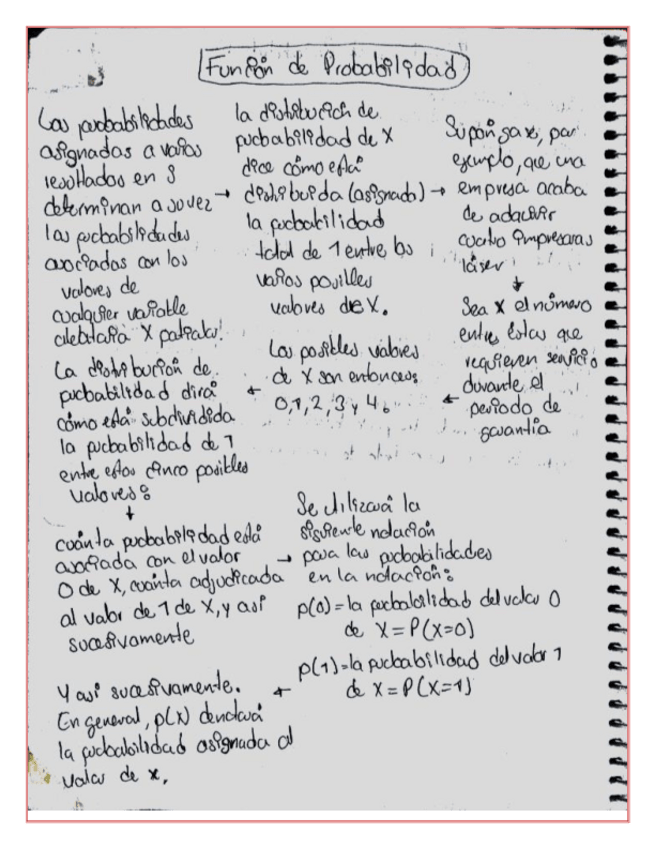 Función de Probabilidad
Las probabilidades
asignadas a varios
resultados en S
determinan a su vez →
las probabilidades
asociadas con los
valores de
cualquier variable
aleatoria X
la distribución de
probabilidad de X
dice cómo está
distribuida (asignada) →
la probabilidad
total de 1 entre los
varios posibles
valores de X.
Supóngase, por
ejemplo, que una
empresa acaba
de adquirir
cuatro impresoras
láser
↓
Sea X el número
entre éstas que
requieren servicio
durante el
periodo de
garantía
←
Los posibles valores
de X son entonces:
0, 1, 2, 3 y 4.
←
La distribución de
probabilidad dirá
cómo está subdividida
la probabilidad de 1
entre estos cinco posibles
valores:
↓
cuánta probabilidad está
asociada con el valor
0 de X, cuánta adjudicada
al valor de 1 de X, y así
sucesivamente
→
Se utilizará la
siguiente notación
para las probabilidades
en la notación:
p(0) = la probabilidad del valor 0
de X = P(X=0)
p(1) = la probabilidad del valor 1
de X = P(X=1)
←
Y así sucesivamente.
En general, p(x) denotará
la probabilidad asignada al
valor de x.